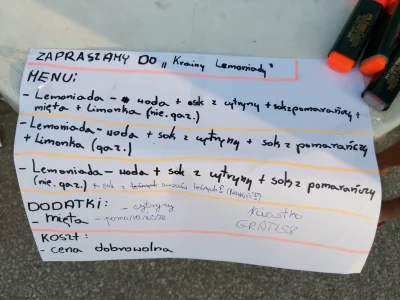 ZAPRASZAMY DO „Krainy Lemoniady"
MENU:
- Lemoniada - woda + sok z cytryny + sok z pomarańczy +
mięta + limonka (nie. gaz.)
- Lemoniada - woda + sok z cytryny + sok z pomarańczy
+ Limonka (gaz.)
- Lemoniada - woda + sok z cytryny + sok z pomarańczy
(nie. gaz.) + sok z owoców leśnych
DODATKI: - cytryny
- mięta - pomarańcze
Ciastko
GRATIS
KOSZT:
- cena dobrowolna